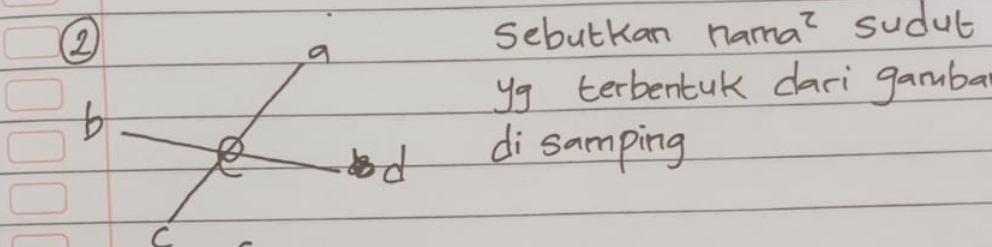 ② Sebutkan nama² sudut
yg terbentuk dari gamba
di samping
a
b
e
d
c